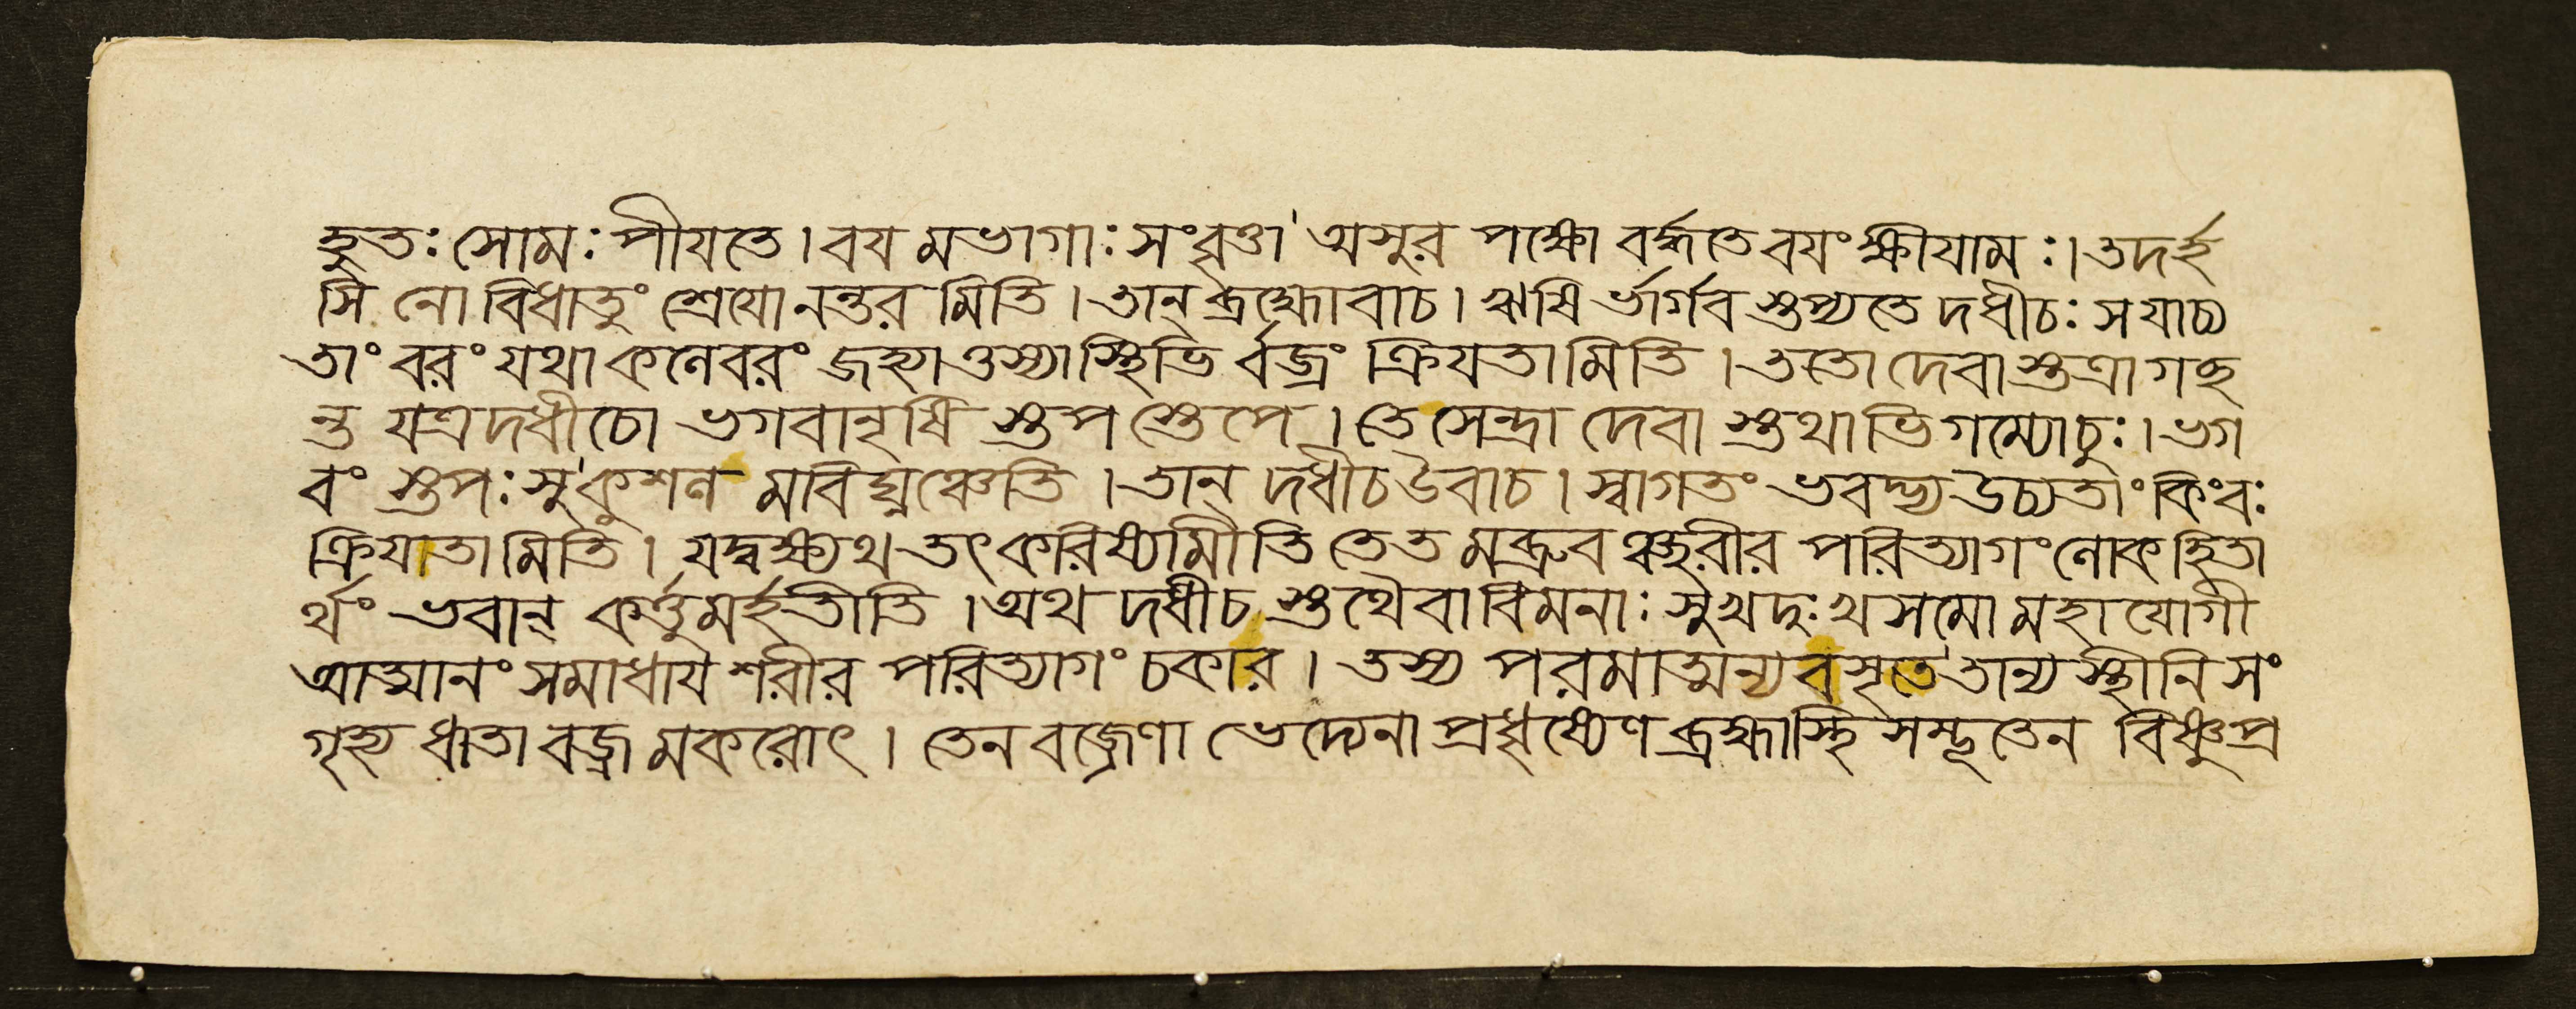 হুতঃ সোমঃ পীযতে। বয মভাগাঃ সংবৃত্তা অসুর পক্ষো বর্দ্ধতে বযং ক্ষীযামঃ। তদর্হ
সি নো বিধাতুং শ্রেযোনন্তর মিতি। তান্ ব্রহ্মোবাচ। ঋষি র্ভার্গব স্তপ্যতে দধীচঃ স যাচ্য
তাং বরং যথা কলেবরং জহ্যা ত্তস্যাস্থিভি র্বজ্রং ক্রিযতামিতি। ততো দেবাস্তত্রাগচ্ছ
ন্ত যত্র দধীচো ভগবানৃষি স্তপ স্তেপে। তে সেন্দ্রা দেবা স্তথাভিগম্যোচুঃ। ভগ
বং স্তপঃ সুকুশল মবিঘ্নঞ্চেতি। তান্ দধীচ উবাচ। স্বাগতং ভবদ্ভ্য উচ্যতাং কিংবঃ
ক্রিযাতামিতি। যদ্বক্ষ্যথ তৎ করিষ্যামীতি তে ত মব্রুব ঞ্ছরীর পরিত্যাগং লোকহিতা
র্থং ভবান্ কর্ত্তুমর্হতীতি। অথ দধীচ স্তথৈবাবিমনাঃ সুখদুঃখসমো মহাযোগী
আত্মানং সমাধায শরীর পরিত্যাগং চকার। তস্য পরমাত্মন্যবসৃতে তান্যস্থীনি সং
গৃহ্য ধাতা বজ্র মকরোৎ। তেন বজ্রেণা ভেদ্যেনা প্রধৃষ্যেণ ব্রহ্মাস্থি সম্ভূতেন বিষ্ণুপ্র